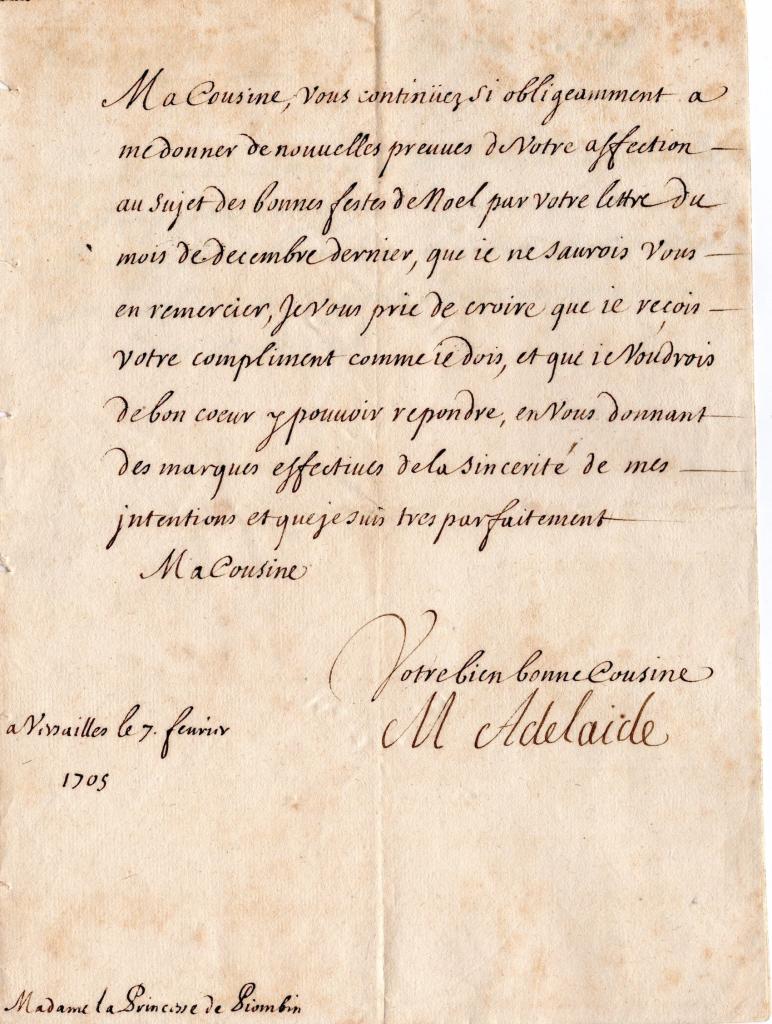 Ma Cousine, Vous continüez si obligeamment a
me donner de nouuelles preuues de Votre affection
au sujet des bonnes festes de Noel par votre lettre du
mois de decembre dernier, que ie ne saurois Vous
en remercier, Je Vous prie de croire que ie reçois
votre compliment comme ie dois, et que ie Voudrois
de bon coeur y pouuoir repondre, en Vous donnant
des marques effectiues de la sincerité de mes
jntentions et que je suis tres parfaitement
Ma Cousine
Votre bien bonne Cousine
M Adelaide
a Versailles le 7. feurier
1705
Madame la Princesse de Piombin